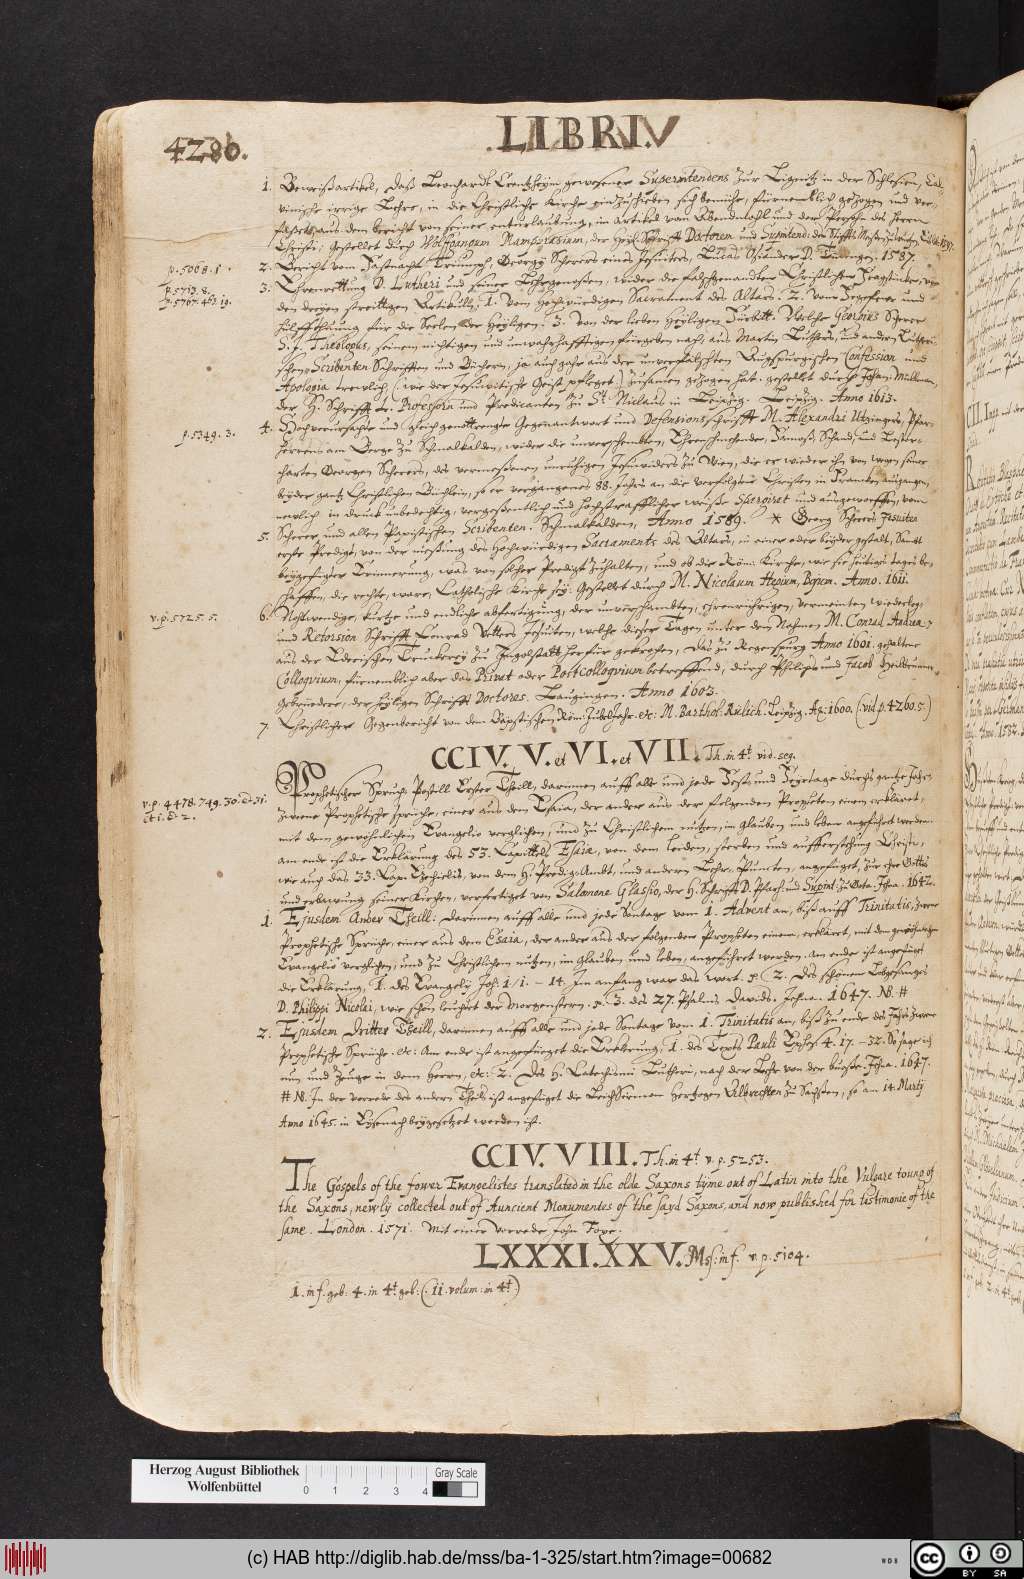 4286.
LIBRI.V
1. Beweißartikel, Daß Leonhardt Krentzheym gewesener Superintendens zur Lignitz in der Schlesien, Cal-
vinische irrige Lehre, in die Christliche Kirche einzuschieben sich bemühe, fürnemblich gezogen und ver-
faßet aus dem bericht von seiner enturlaubung, im artikel vom Abendmahl und der Person des Herrn
Christi; Gestellet durch Wolfgangum Mamphrasium, der Heyl. Schrifft Doctorem und
p. 5068. 1.
2. Bericht vom Faßnacht Triumph, Georgij Scherers eines Jesuiters, Lucas Osiander D. Tübingen. 1587.
p. 5713. 8.
p. 5767. 463. 19.
3. Ehrenrettung D. Lutheri und seiner Lehrgenoßen, wider die
den dreyen streittigen Artikuln, 1. vom Hochwürdigen Sacrament des Altars. 2. vom Fegefewr und
hülffthuung für die Seelen der Heyligen. 3. Von der lieben Heyligen Fürbitt. Welche Georgius Scherer
S. J. Theologus, seinem nichtigen und unwahrhafftigen fürgeben nach, aus Martin Luthers, und andern Lutheri-
schen Scribenten Schrifften und Büchern, ja auch gahr aus der unverfälschten Augspurgischen Confession und
Apologia trewlich (wie der Jesuwitische Geist pfleget) zusamen gezogen hat. gestellet durch Johan: Mülman,
der H. Schrifft &c. Professorn und Predicanten zu St. Niclaus in Leipzig. Leipzig. Anno 1613.
p. 5349. 3.
4. Hochverursachte und gleich genottrengte Gegenantwort und Defensionsschrifft M. Alexandri Utzingers, Pfar-
herrens am Berge zu Schmalkalden, wider die unverschembten, Ehrenschendene, Famoß, Schand, und Lester-
charten Georgen Scherers, des vermeßenen unruhigen Jesuwiders zu Wien, die er wieder ihn von wegen seiner
beyder gantz Christlichen Büchlein, so er vergangenes 88. Jahrs an die verfolgten Christen in Francken außgangen,
newlich in druck unbedechtig, vergeßentlich und höchststräfflicher weiße spargiret und außgeworffen, vom
5. Scherer, und allen Papistischen Scribenten. Schmalkalden, Anno 1589. * Georg Scherers Jesuiten
erste Predigt, von der nießung des Hochwürdigen Sacraments des Altars, in einer oder beyder gestalt, Sampt
beygefügter Erinnerung, was von solcher Predigt zuhalten, und ob die Röm: Kirche, wie sie heutiges tages be-
schaffen, die rechte, ware, Catholische Kirche sey: Gestellet durch M. Nicolaum Hegium, Anno. 1611.
v. p. 5725. 5.
6. Nothwendige, kurtze und endliche abfertigung, der unverschambten, ehrenrührigen, vermeinten wiederleg-
und Retorsion Schrifft, Conrad Vetters Jesuiten, welche dieser Tagen unter dem Nahmen M. Conrad Andreæ
aus der Ederischen Truckerey zu Ingolstadt herfür gekrochen, Das zu Regenspurg Anno 1601. gehaltene
Colloqvium, fürnemblich aber das Privat oder Postcolloqvium betreffend, durch Philips und Jacob Heilbrunner
Gebrüedere, der Heyligen Schrifft Doctores. Laugingen. Anno 1603.
7. Christlicher Gegenbericht von dem Bäpstischen Röm. Jubeljahr. &c: M. Barthol. Rülich. Leipzig. Aō: 1600. (vid. p. 4260. 5.)
CCIV. V. et VI. et VII. Th. in 4t. vid. seq.
v. p. 4478. 749. 30. et 31.
et 1. et 2.
Prophetischer Spruch Postill Erster Theill, darinnen auff alle und jede Fest- und Feyertage durchs gantze Jahr,
zweene Prophetische sprüche, einer aus dem Esaia, der ander aus der folgenden Propheten einem erkläret,
mit dem gewöhnlichen Evangelio verglichen, und zu Christlichem nutzen, im glauben und leben angeführet werden.
am ende ist die Erklärung des 53. Capittels Esaiæ, von dem leiden, sterben und aufferstehung Christi,
wie auch das 33. Cap: Ezechielis, von dem H. Predig-Ambt, und andern Lehr-Puncten, angefüget, zur ehre Gottes
und erbawung seiner Kirchen, verfertiget von Salomone Glassio, der H. Schrifft D. Pfarh. und Supint. zu Gota. Jehna. 1642.
1. Ejusdem Ander Theill: darinnen auff alle und jede Sontage vom 1. Advent an, biß auff Trinitatis, zweene
Prophetische Sprüche, einer aus dem Esaia, der ander aus der folgenden Propheten einem, erkläret, mit dem gewöhnlichen
Evangelio verglichen, und zu Christlichem nutzen, im glauben und leben, angeführet werden. am ende ist angefüget
die Erklärung, 1. des Evangelij Joh: 1 / 1. – 14. Im anfang war das wort. &. 2. Des schönen Lobgesangs
D. Philippi Nicolai, wie schön leuchtet der Morgenstern. &. 3. des 27. Psalms Davids. Jehna. 1647. NB. #
2. Ejusdem Dritter Theill, darinnen auff alle und jede Sontage vom 1. Trinitatis an, biß zu ende des Jahrs zweene
Prophetische Sprüche. &c: Am ende ist angefüeget die Erklerung, 1. des Texts Pauli Ephes. 4. 17. – 32. So sage ich
nun und Zeuge in dem Herrn, &c: 2. Des H. Catechismi Lutheri, nach der Lehr von der Buße. Jehna. 1647.
# NB. In der vorrede des andern Theils ist angefüget die Leich Sermon Hertzogen Albrechten zu Sachßen, so am 14. Martij
Anno 1645. in Eysenach beygesetzet worden ist.
CCIV. VIII. Th. in 4t. v. p. 5253.
The Gospels of the fower Evangelistes translated in the olde Saxons tyme out of Latin into the Vulgare toung of
the Saxons, newly collected out of Auncient Monumentes of the sayd Saxons, and now published for testimonie of the
same. London. 1571. Mit einer vorrede John Foxe.
LXXXI. XXV. Mss: in f. v. p. 5104.
1. in f. geb: 4. in 4t. geb: (. 11. volum: in 4t.)
Herzog August Bibliothek
Wolfenbüttel
0 1 2 3 4
Gray Scale
(c) HAB http://diglib.hab.de/mss/ba-1-325/start.htm?image=00682
WDB
cc
BY SA